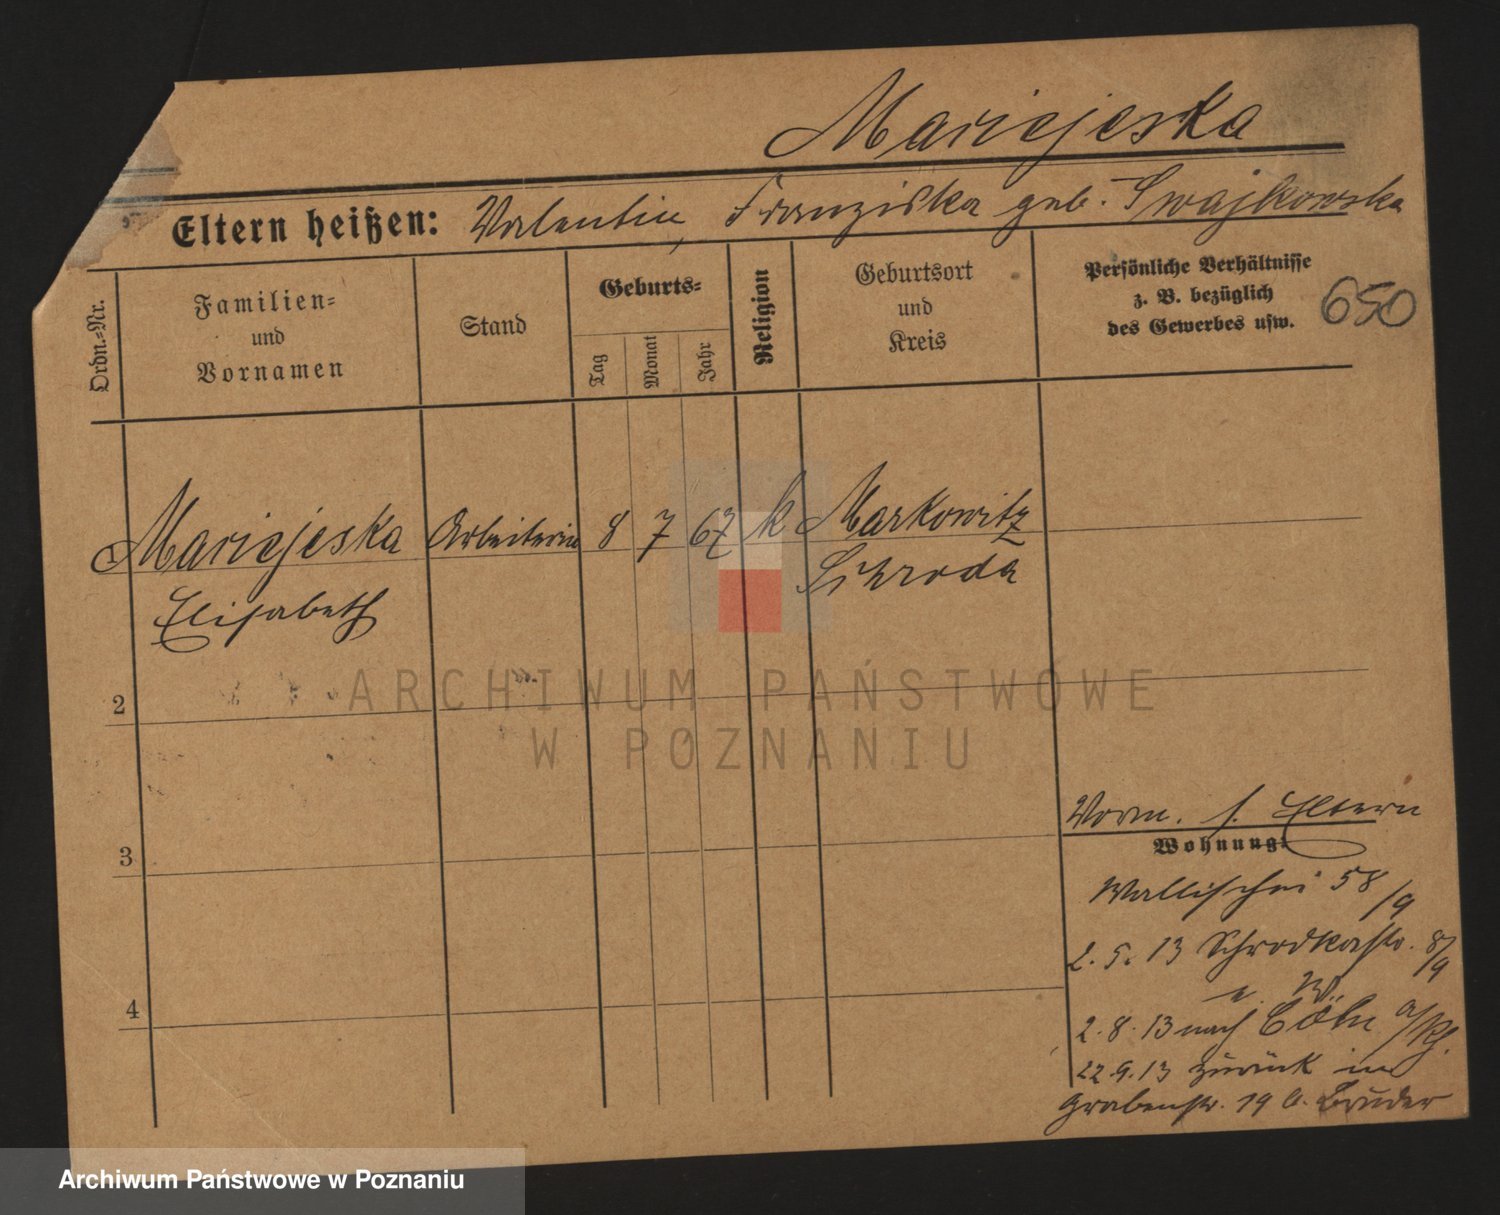 Maricjeska
Eltern heißen: Valentin, Franziska geb. Swajkowska
Ordn.-Nr.
Familien-
und
Vornamen
Stand
Geburts-
Tag
Monat
Jahr
Religion
Geburtsort
und
Kreis
Persönliche Verhältnisse
z. B. bezüglich
des Gewerbes usw.
650
1 Maricjeska Arbeiterin 8 7 67 k Markowitz
Elisabeth Schroda
2
3
4
Vorm. s. Eltern
Wohnung:
Wallischei 58/9
2. 5. 13 Schrodkastr. 8/9
2. 8. 13 nach Cöln a/Rh.
22. 9. 13 zurück
Grabenstr. 19 b. Bruder
ARCHIWUM PAŃSTWOWE
W POZNANIU
Archiwum Państwowe w Poznaniu